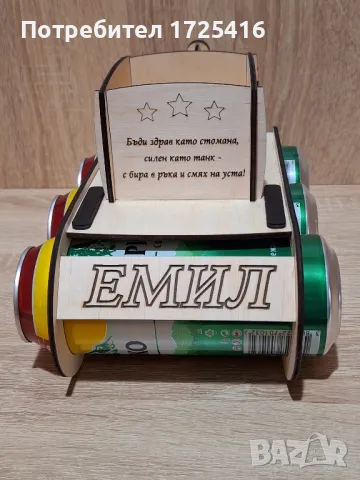 Потребител 1725416
Бъди здрав като стомана,
силен като танк -
с бира в ръка и смях на уста!
ЕМИЛ
BAZAR